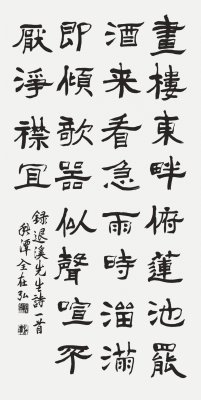 畫樓東畔俯蓮池罷
酒来看急雨時溜滿
即傾欹器似聲喧不
厭淨襟宜
錄退溪先生詩一首
潭全在弘